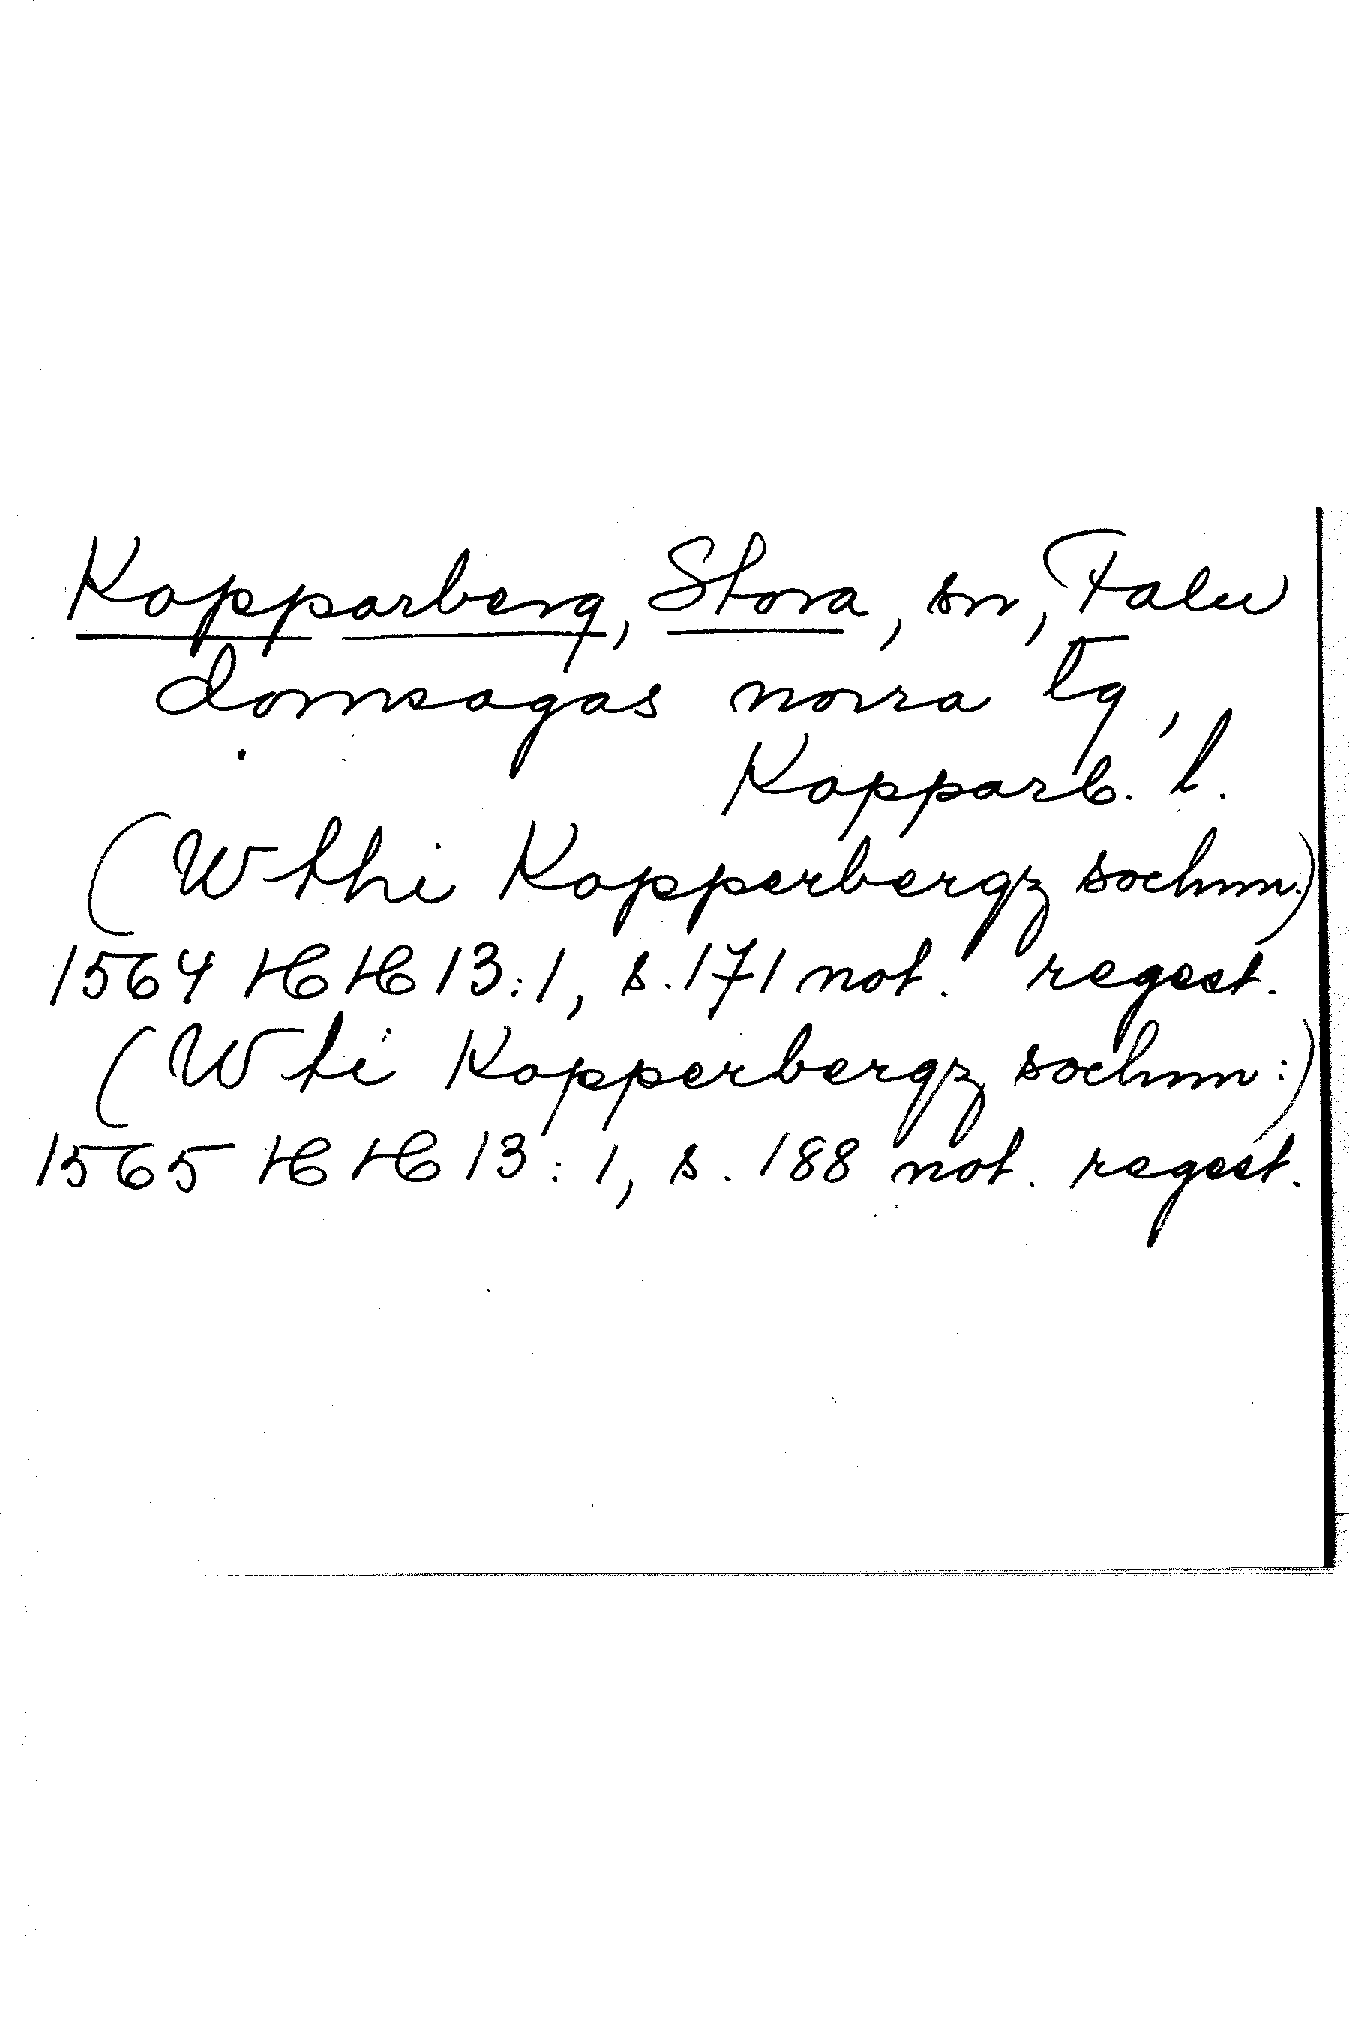 Kopparberg, Stora, sn, Falu
domsagas norra tg,
Kopparb. l.
(Wthi Kopperbergz sochnn.)
1564 HH 13:1, s. 171 not. regest.
(Wti Kopperbergz sochnn:)
1565 HH 13:1, s. 188 not. regest.